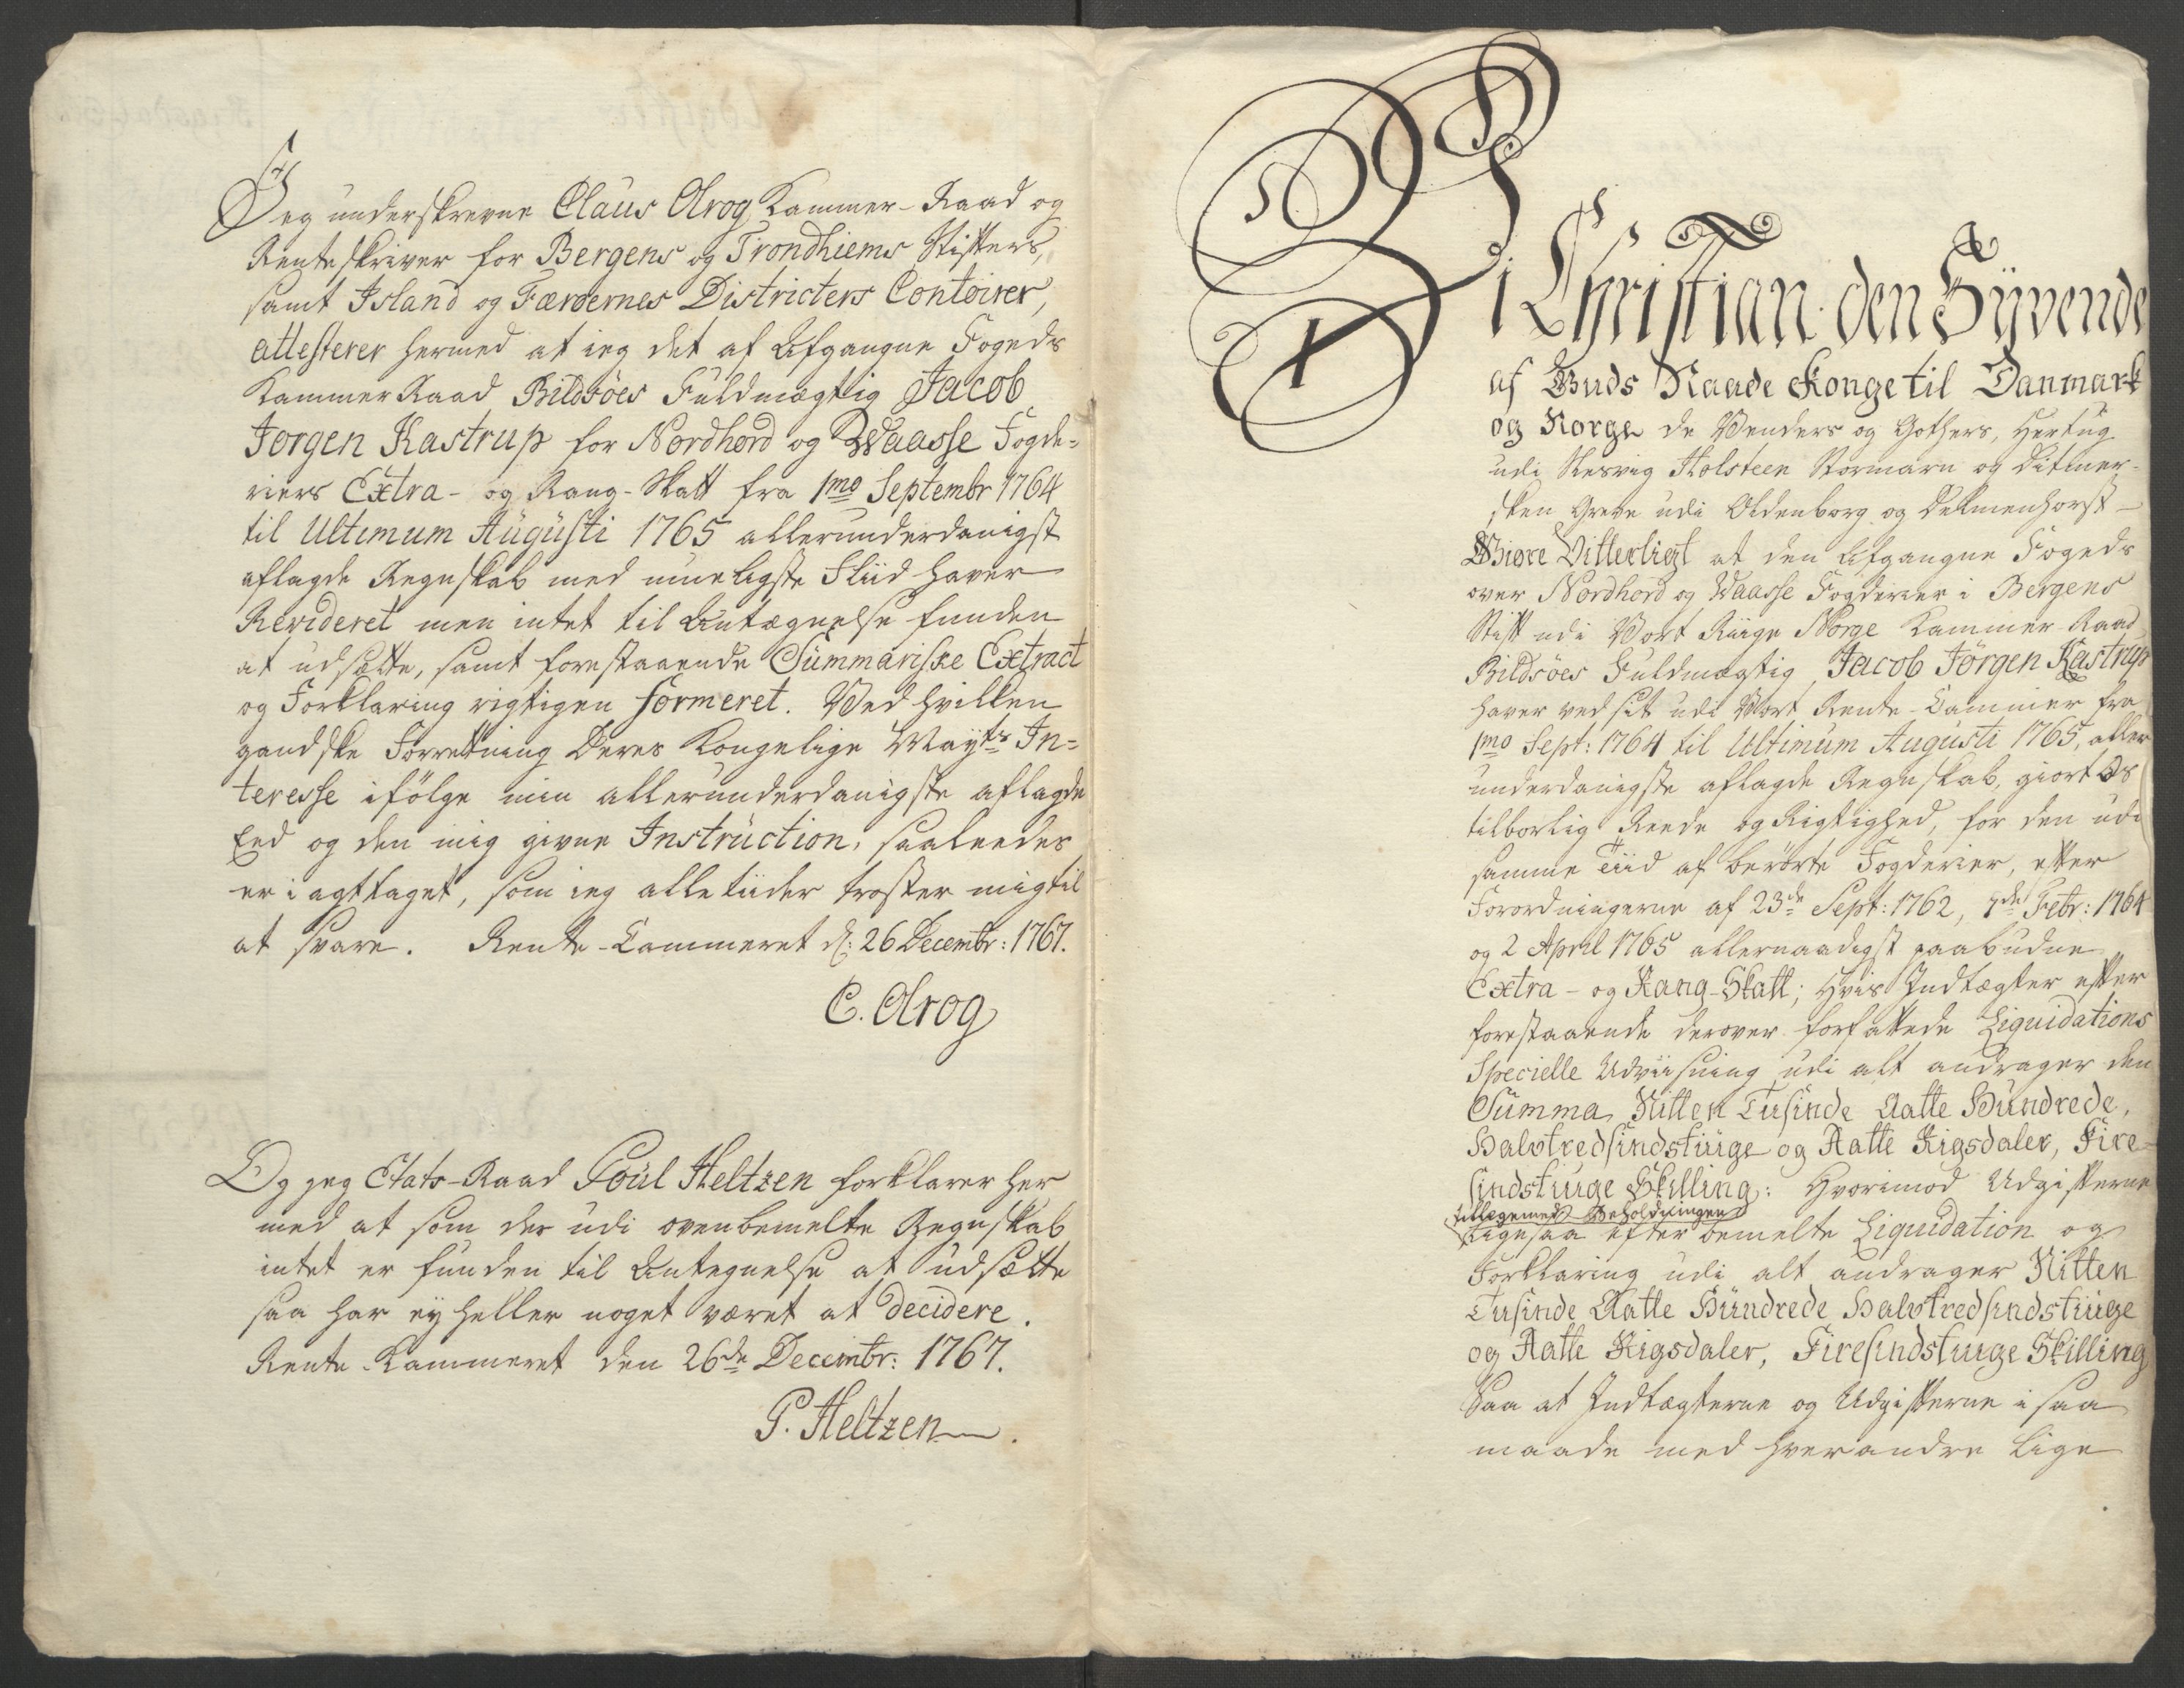 Jeg underskrevne Claus Olrog Kammer-Raad og
Renteskriver for Bergens og Trondhiems Stifters,
samt Jsland og Færöernes Districters Contoirer,
attesterer hermed at ieg det af Afgangne Fogeds
Kammer Raad Bildsöes Fuldmægtig Jacob
Jörgen Kastrup for Nordhord og Waasse Fogde-
riers Extra- og Rang-Skatt fra 1mo Septembr 1764
til Ultimum Augusti 1765 allerunderdanigst
aflagde Regnskab med mueligste Fliid haver
Revideret men intet til Antægnelse funden
at udsætte, samt forestaaende Summariske Extract
og Forklaring rigtigen formeret. Ved hvilken
gandske Forretning Deres Kongelige Mayts In-
teresse ifölge min allerunderdanigste aflagde
Eed og den mig givne Instruction, saaleedes
er i agttaget, som ieg alletiider tröster mig til
at svare. Rente-Cammeret d: 26 Decembr: 1767.
C. Olrog
Og jeg Etats-Raad Poul Heltzen forklarer her
med at som der udi ovenbemelte Regnskab
intet er funden til Antegnelse at udsætte
saa har ey heller noget været at decidere.
Rente-Kammeret den 26de Decembr: 1767.
P. Heltzen.
Vi Christian den Syvende
af Guds Naade Konge til Danmark
og Norge de Venders og Gothers, Hertug
udi Slesvig Holsteen Stormarn og Ditmer-
sken Greve udi Oldenborg og Delmenhorst
Giöre Vitterligt at den Afgangne Fogeds
over Nordhord og Waasse Fogderier i Bergens
Stift udi Vort Riige Norge Kammer-Raad
Bildsöes Fuldmægtig, Jacob Jörgen Kastrup
haver ved sit udi Vort Rente-Cammer fra
1mo Sept: 1764 til Ultimum Augusti 1765, aller
underdanigste aflagde Regnskab, giort Os
tilbörlig Reede og Rigtighed, for den udi
samme Tiid af berörte Fogderier, efter
Forordningerne af 23de Sept: 1762, 7de Febr: 1764
og 2 April 1765 allernaadigst paabudne
Extra- og Rang-Skatt; Hvis Indtægter efter
forestaaende derover forfattede Liquidations
Specielle Udviisning udi alt andrager den
Summa Nitten Tusinde Aatte Hundrede,
Halvtredsindstiuge og Aatte Rigsdaler, Fire-
sindstiuge Skilling: Hvorimod Udgifterne
tilligemed Beholdningen
ligesaa efter bemelte Liquidation og
Forklaring udi alt andrager Nitten
Tusinde Aatte Hundrede Halvtredsindstiuge
og Aatte Rigsdaler, Firesindstiuge Skilling
Saa at Indtægterne og Udgifterne i saa
maade med hverandre lige